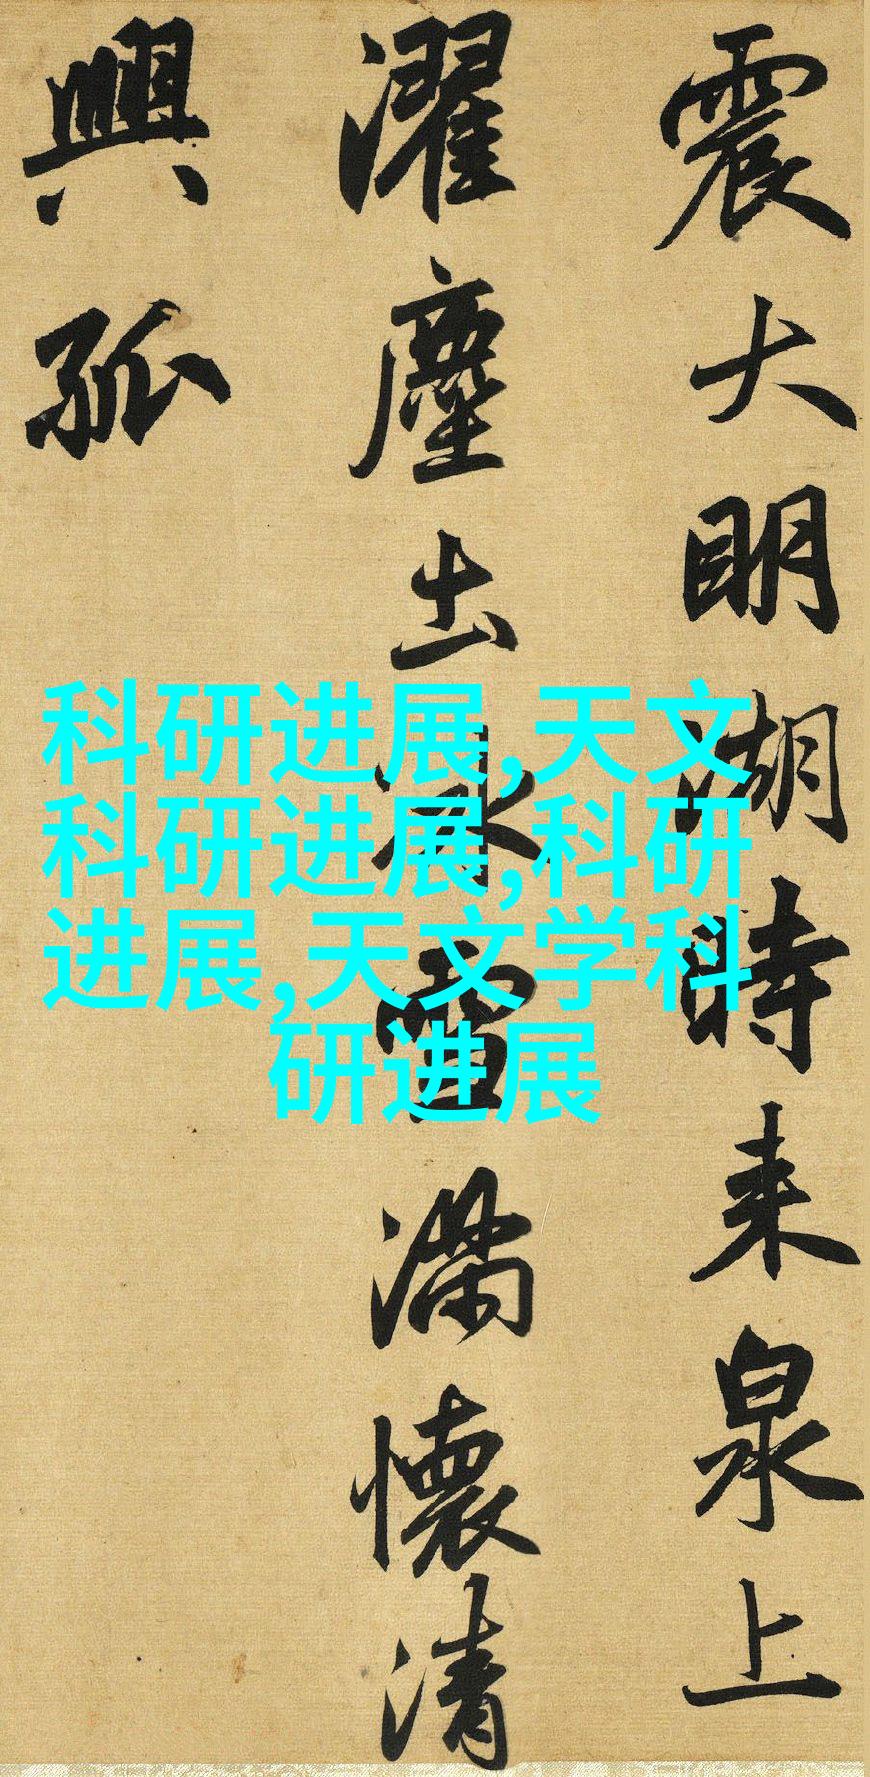 震大明湖時来泉上
濯塵土冰雪滿懷清
興孤
科研进展,天文
科研进展,科研
进展,天文学科
研进展